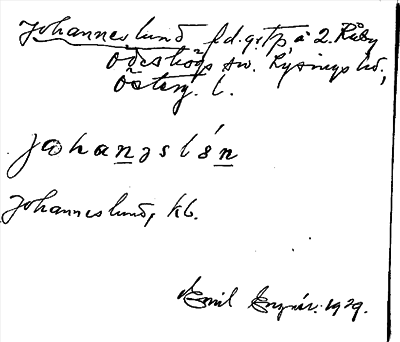 Johanneslund f.d. grtp, å 2. Råby
Ödeshögs sn. Lysings hd,
Österg. l.
johanəslón
Johanneslund, kb.
Emil 1929.